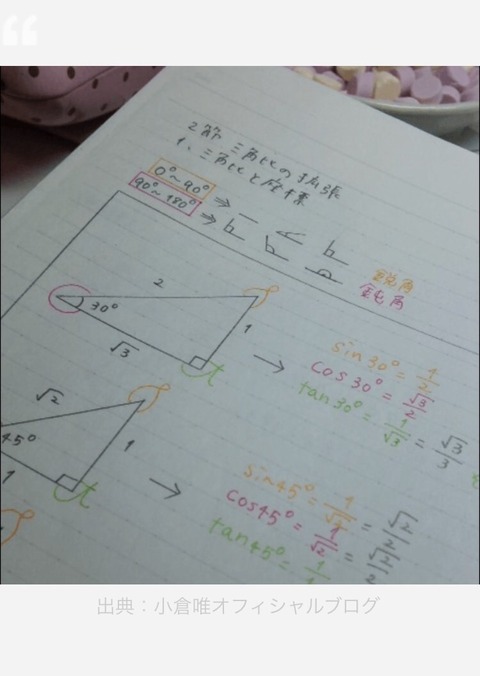 2節 三角比の拡張
1. 三角比と座標
0°~90° ⇒
90°~180° ⇒
鋭角
鈍角
2
30°
1
√3
sin30°=1/2
cos30°=√3/2
tan30°=1/√3=√3/3
√2
45°
1
1
sin45°=1/√2=√2/2
cos45°=1/√2=√2/2
tan45°=1/1
出典：小倉唯オフィシャルブログ